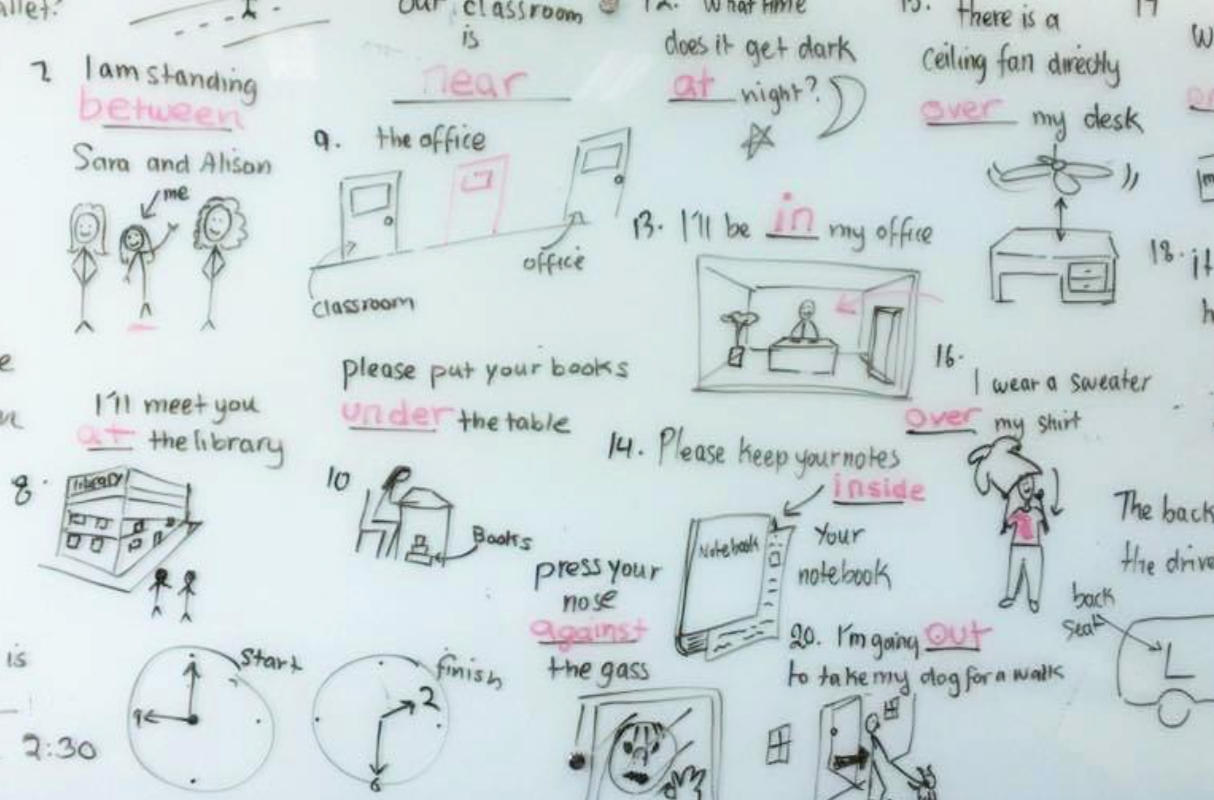 7 I am standing
between
Sara and Alison
me
I'll meet you
at the library
8.
library
our classroom
is
near
9. the office
classroom
office
please put your books
under the table
10
Books
12. What time
does it get dark
at night?
13. I'll be in my office
14. Please keep your notes
inside
your
notebook
Notebook
15. there is a
ceiling fan directly
over my desk
16.
I wear a sweater
over my shirt
17
18. it
press your
nose
against
the gass
20. I'm going out
to take my dog for a walk
The back
the drive
back
seat
is
2:30
start
9
finish
2
6